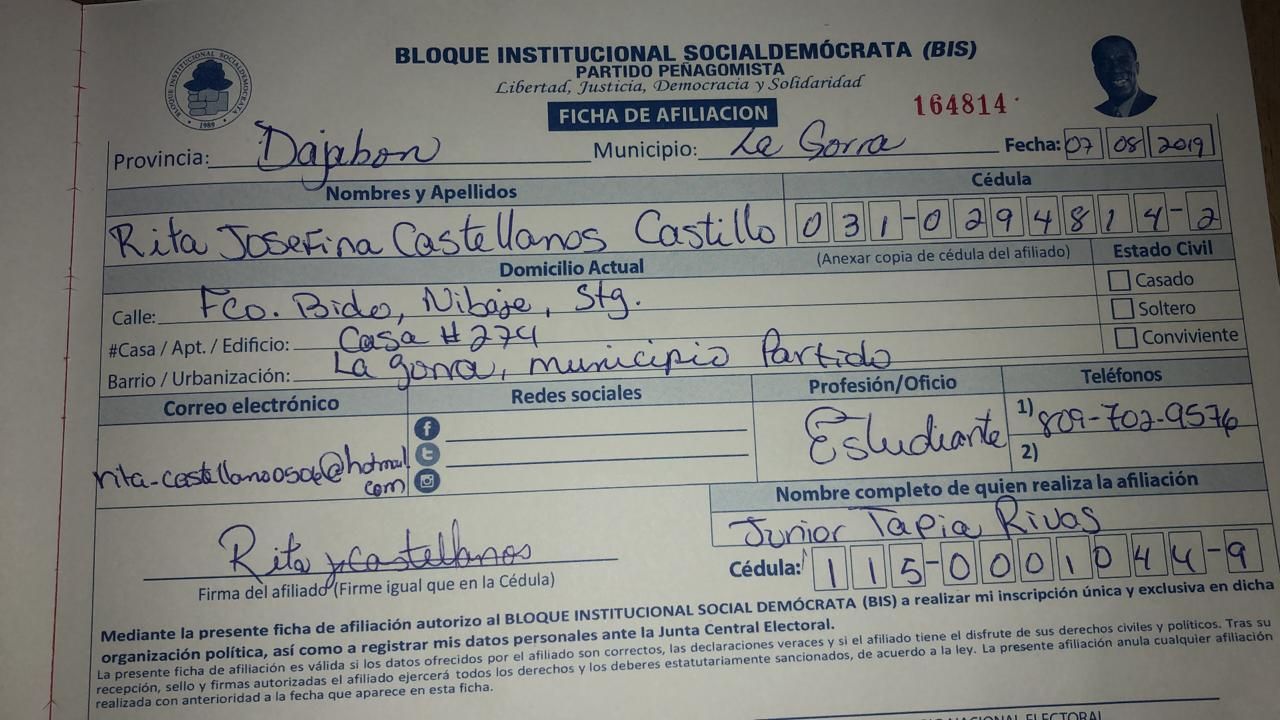 BLOQUE INSTITUCIONAL SOCIALDEMÓCRATA (BIS)
PARTIDO PEÑAGOMISTA
Libertad, Justicia, Democracia y Solidaridad
BLOQUE INSTITUCIONAL SOCIALDEMOCRATA
1989
FICHA DE AFILIACION
164814
Provincia: Dajabon Municipio: La Gorra Fecha: 07 08 2019
Nombres y Apellidos Cédula
Rita Josefina Castellanos Castillo 031-0294814-2
Domicilio Actual (Anexar copia de cédula del afiliado) Estado Civil
Calle: Fco. Bido, Nibaje, Stg. Casado
Soltero
#Casa / Apt. / Edificio: Casa # 274 Conviviente
Barrio / Urbanización: La gorra, municipio Partido
Correo electrónico Redes sociales Profesión/Oficio Teléfonos
rita-castellano @hotmail Estudiante 1) 809-702-9576
com 2)
Nombre completo de quien realiza la afiliación
Junior Tapia Rivas
Rita y castellanos
Firma del afiliado (Firme igual que en la Cédula) Cédula: 115-0001044-9
Mediante la presente ficha de afiliación autorizo al BLOQUE INSTITUCIONAL SOCIAL DEMÓCRATA (BIS) a realizar mi inscripción única y exclusiva en dicha
organización política, así como a registrar mis datos personales ante la Junta Central Electoral.
La presente ficha de afiliación es válida si los datos ofrecidos por el afiliado son correctos, las declaraciones veraces y si el afiliado tiene el disfrute de sus derechos civiles y políticos. Tras su
recepción, sello y firmas autorizadas el afiliado ejercerá todos los derechos y los deberes estatutariamente sancionados, de acuerdo a la ley. La presente afiliación anula cualquier afiliación
realizada con anterioridad a la fecha que aparece en esta ficha.
NACIONAL ELECTORAL